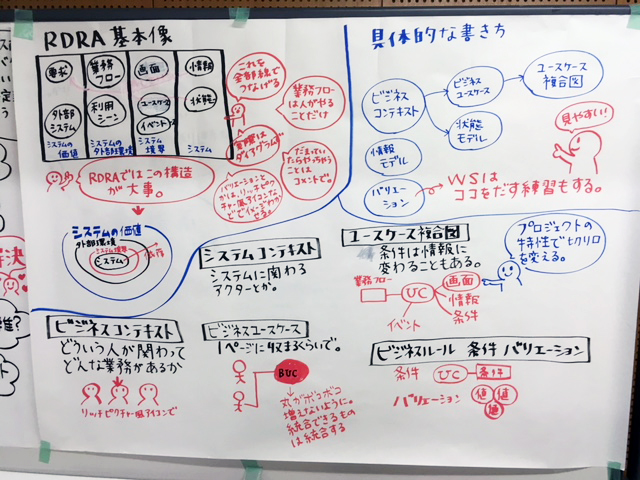 RDRA 基本像
要求
業務
フロー
画面
情報
外部
システム
利用
シーン
ユースケース
イベント
状態
システム
の価値
システムの
外部環境
システム
境界
システム
これを
全部線で
つなげる
業務フロー
は人がやる
ことだけ
実際は
ダイアグラムで
RDRAではこの構造
が大事。
バリエーションと
ことは
コメントで。
システムの価値
外部環境
システム境界
システム
依存
具体的な書き方
ビジネス
コンテキスト
ビジネス
ユースケース
ユースケース
複合図
状態
モデル
情報
モデル
バリエー
ション
見やすい!
WSは
ココをだす練習もする。
システムコンテキスト
システムに関わる
アクターとか。
ユースケース複合図
条件は情報に
変わることもある。
業務フロー
UC
画面
情報
条件
イベント
プロジェクトの
特性で切り口
を変える。
ビジネスコンテキスト
どういう人が関わって
どんな業務があるか
リッチピクチャー風アイコンで
ビジネスユースケース
1ページに収まるくらいで。
BUC
丸がボコボコ
増えないように。
統合できるもの
は統合する
ビジネスルール 条件 バリエーション
条件
UC
条件
バリエーション
値
値
値